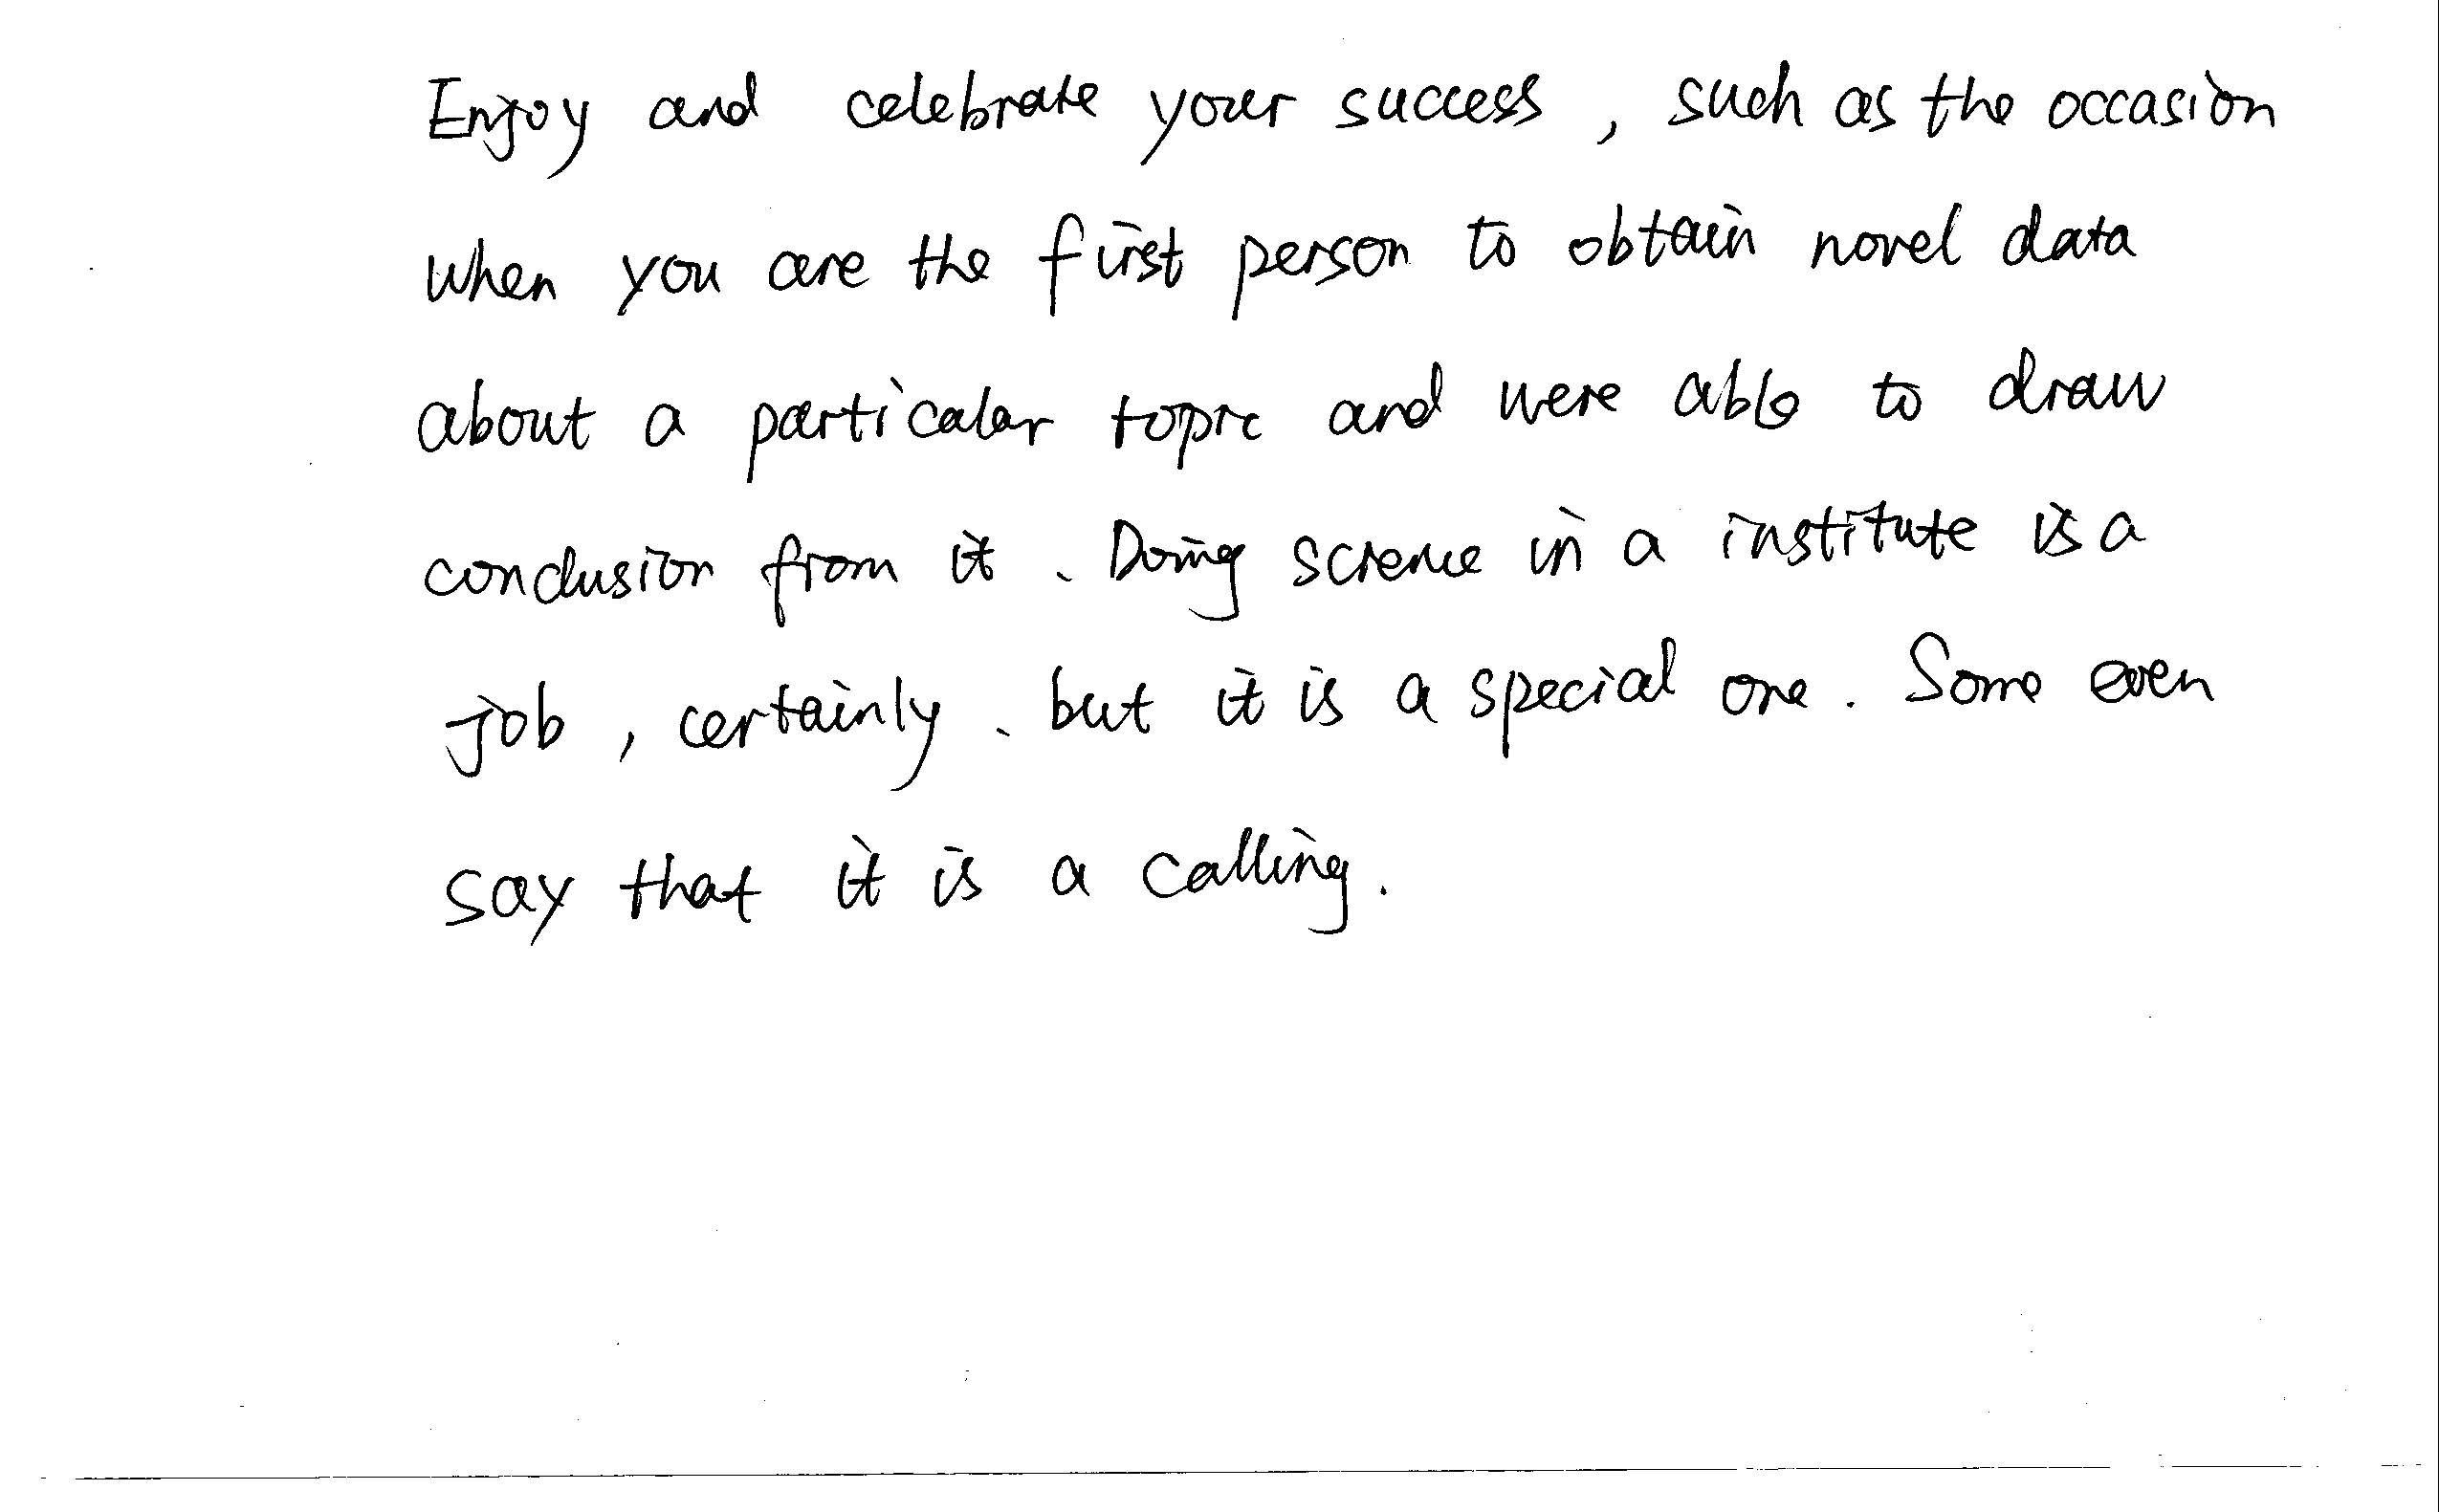 Enjoy and celebrate your success, such as the occasion
when you are the first person to obtain novel data
about a particalar topic and were able to draw
conclusion from it. Doing science in a institute is a
job, certainly. but it is a special one. Some even
say that it is a calling.